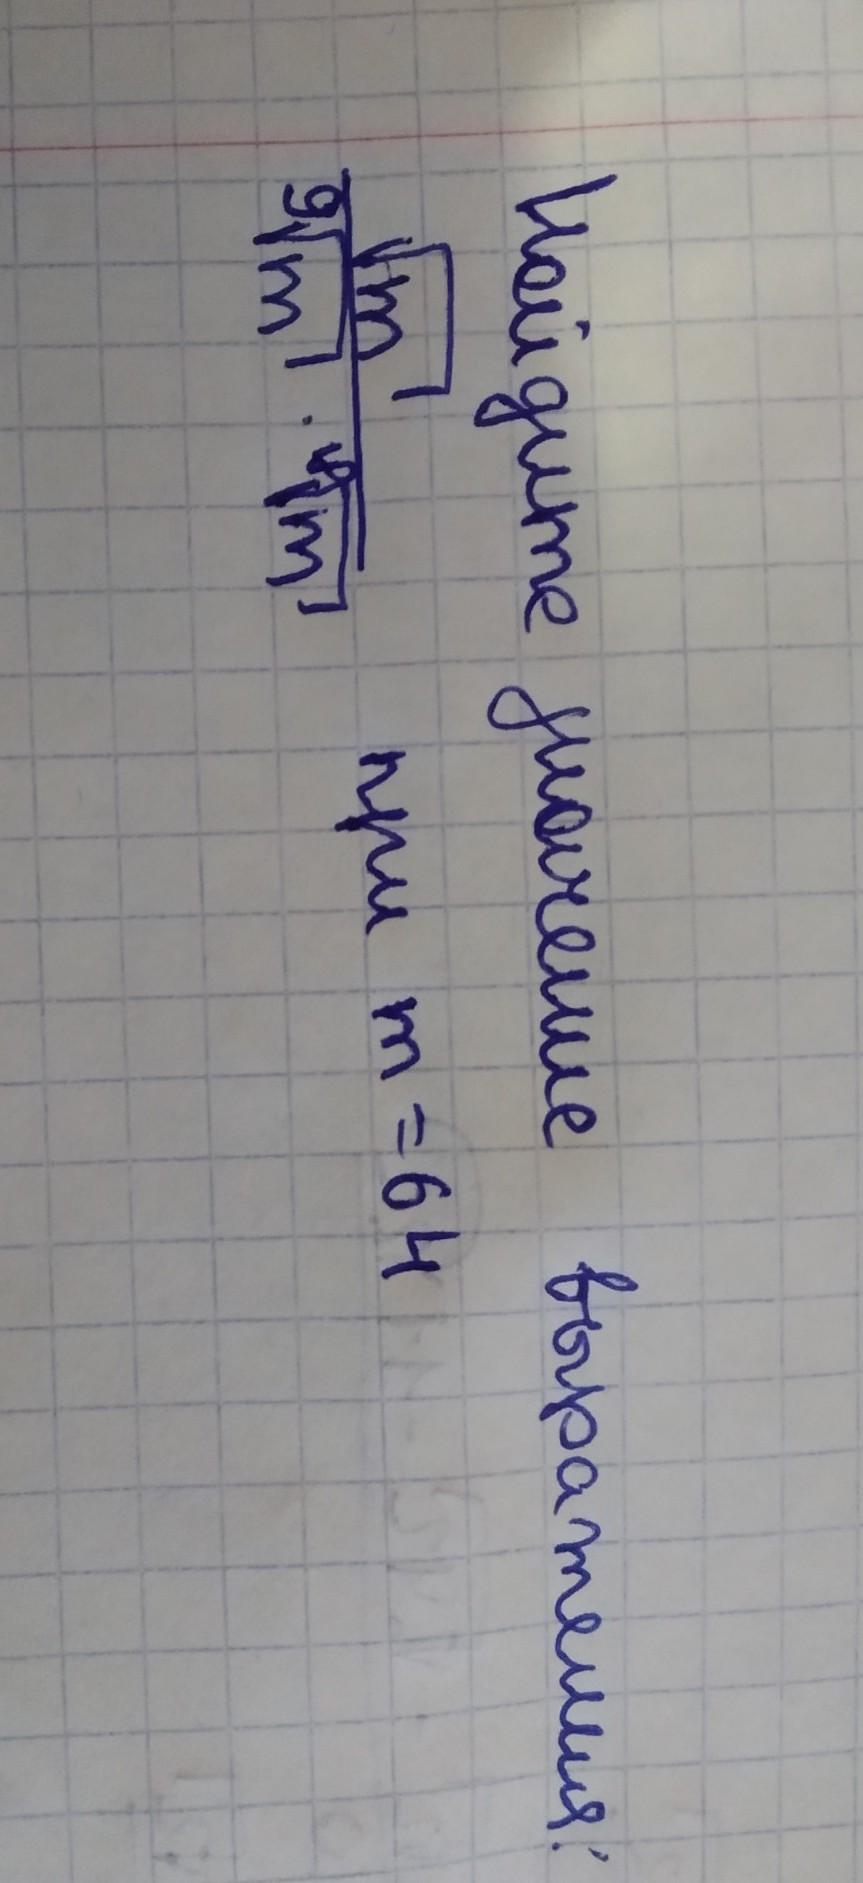 Найдите значение выражения:
√m
⁹√m · ¹⁸√m при m = 64